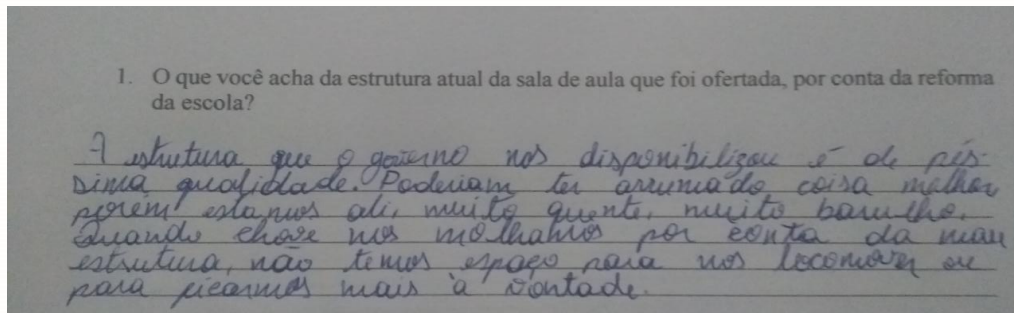 1. O que você acha da estrutura atual da sala de aula que foi ofertada, por conta da reforma
da escola?
A estrutura que o governo nos disponibilizou é de pés-
sima qualidade. Poderiam ter arrumado coisa melhor
porém estamos ali, muito quente, muito barulho.
Quando chove nos molhamos por conta da mau
estrutura, não temos espaço para nos locomover ou
para ficarmos mais à vontade.